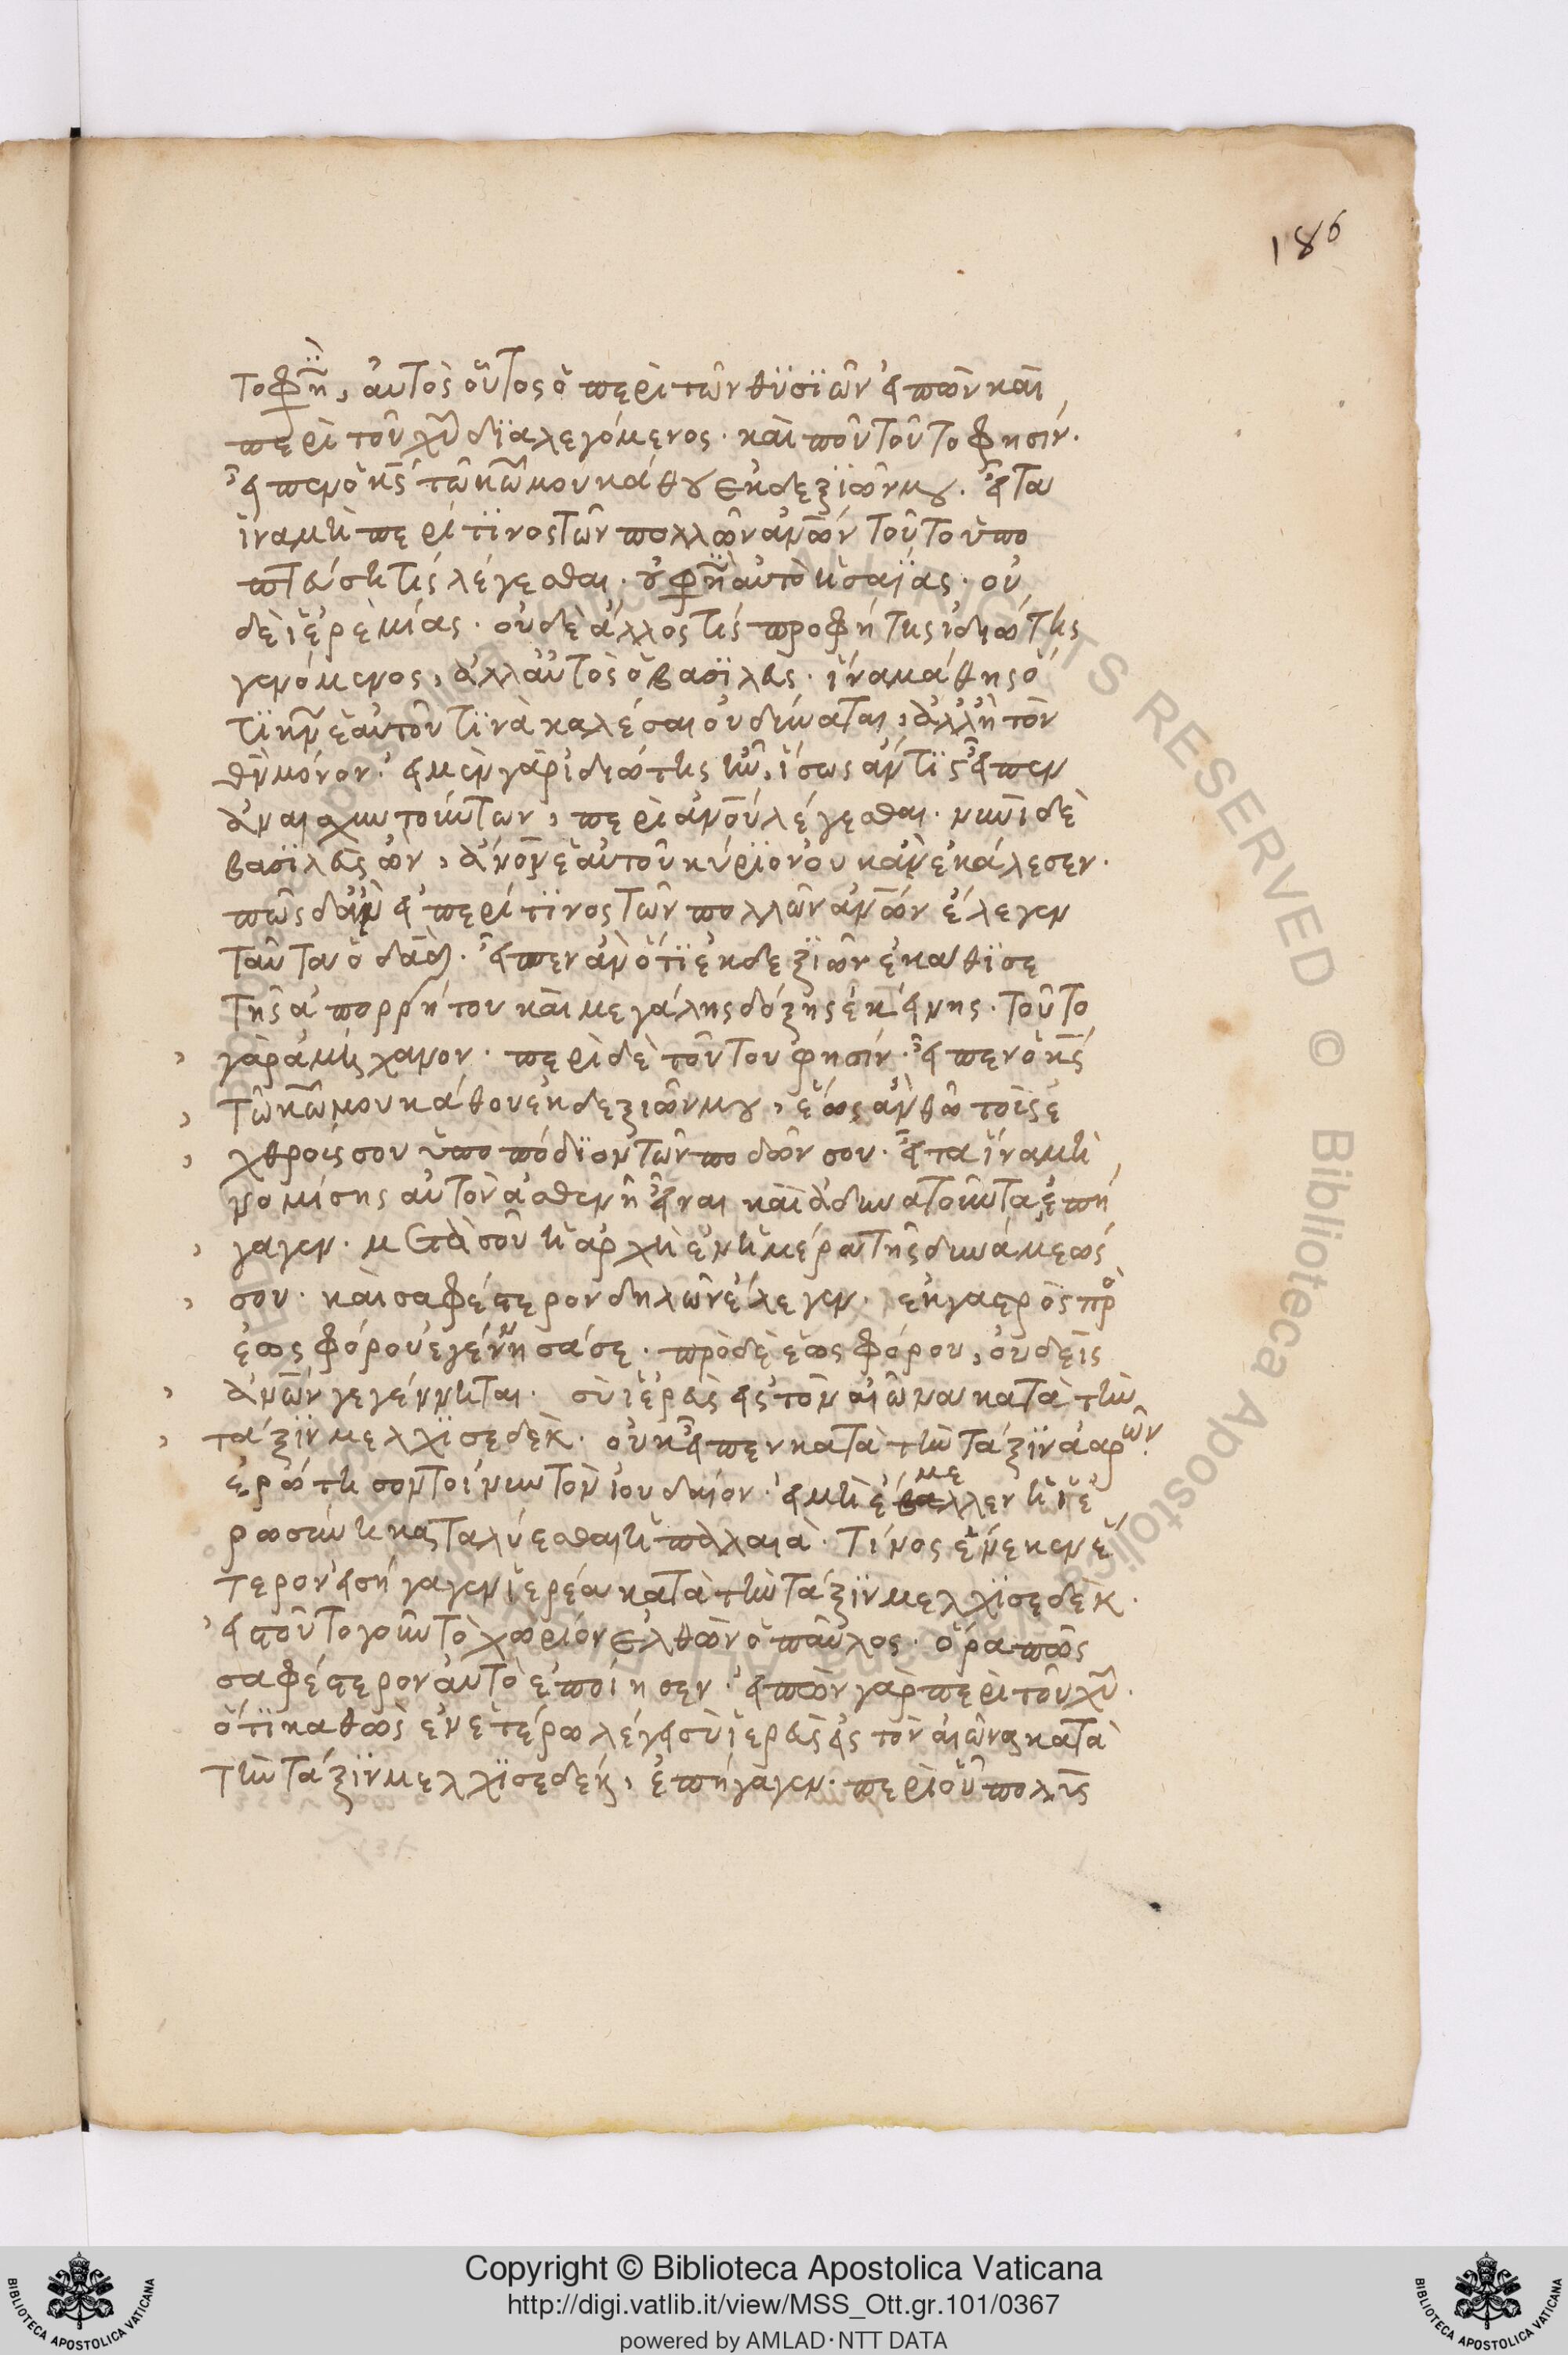 186
τοφῆ, αὐτὸς οὗτος ὁ περὶ τῶν θϋσϊῶν εἰπὼν καὶ
περὶ τοῦ χῦ δϊαλεγόμενος· καὶ ποῦ τοῦτο φησίν·
εἶπεν ὁ κς τῶ κω μου κάθου ἐκ δεξϊῶν μου. εἶτα
ἵνα μὴ περί τϊνος τῶν πολλῶν ἀνων τοῦτο ὑπο
πτεύση τίς λέγεσθαι· οὔ φη αὐτὸ ἡσαΐας· οὐ
δὲ ἱερεμίας· οὐδὲ ἄλλος τίς προφήτης ἰδιώτης
γενόμενος, ἀλλ' αὐτὸς ὁ βασϊλεὺς· ἵνα μάθης ὅ
τϊ κν ἑαυτοῦ τϊνὰ καλέσαι οὐ δύναται, ἀλλ' ἢ τὸν
θν μόνον· εἰ μὲν γὰρ ἰδιώτης ἦν, ἴσως ἄν τϊς εἶπεν
ἀναισχυντούντων, περὶ ανου λέγεσθαι· νυνὶ δὲ
βασϊλεὺς ὢν, ανον ἑαυτοῦ κύρϊον οὐκ ἂν ἐκάλεσεν·
πῶς δ' ἂν εἰ περί τϊνος τῶν πολλῶν ανων ἔλεγεν
ταῦτα ὁ δαδ· εἶπεν ἂν ὅτϊ ἐκ δεξϊῶν ἐκάθϊσε
τῆς ἀπορρήτου καὶ μεγάλης δόξης ἐκείνης· τοῦτο
γὰρ ἀμήχανον· περὶ δὲ τούτου φησίν· εἶπεν ὁ κς
τῶ κω μου κάθου ἐκ δεξιῶν μου, ἕως ἂν θῶ τοὺς ἐ
χθρούς σου ὑποπόδϊον τῶν ποδῶν σου· εἶτα ἵνα μὴ
νομίσης αὐτὸν ἀσθενῆ εἶναι καὶ ἀδυνατοῦντα ἐπή
γαγεν· μετὰ σοῦ ἡ ἀρχὴ ἐν ἡμέρα τῆς δυνάμεώς
σου· καὶ σαφέστερον δηλῶν ἔλεγεν· ἐκ γαστρὸς πρὸ
ἑωσφόρου ἐγέννησά σε· πρὸ δὲ ἑωσφόρου, οὐδεὶς
ανων γεγέννηται· σὺ ἱερεὺς εἰς τὸν αἰῶνα κατὰ τὴν
τάξϊν μελχϊσεδὲκ· οὐκ εἶπεν κατὰ τὴν τάξϊν ἀαρών.
ἐρώτησον τοίνυν τὸν ἰουδαῖον· εἰ μὴ ἔμελλεν ἡ ἱε
ρωσύνη καταλύεσθαι ἡ παλαιὰ· τίνος ἕνεκεν ἕ
τερον εἰσήγαγεν ἱερέα κατὰ τὴν τάξϊν μελχϊσεδὲκ·
εἰς τοῦτο γοῦν τὸ χωρίον ἐλθὼν ὁ παῦλος· ὅρα πῶς
σαφέστερον αὐτὸ ἐποίησεν· εἰπὼν γὰρ περὶ τοῦ χῦ·
ὅτϊ καθὼς ἐν ἑτέρω λέγει σὺ ἱερεὺς εἰς τὸν αἰῶνα κατὰ
τὴν τάξϊν μελχϊσεδέκ, ἐπήγαγεν· περὶ οὗ πολὺς
Copyright © Biblioteca Apostolica Vaticana
http://digi.vatlib.it/view/MSS_Ott.gr.101/0367
powered by AMLAD·NTT DATA